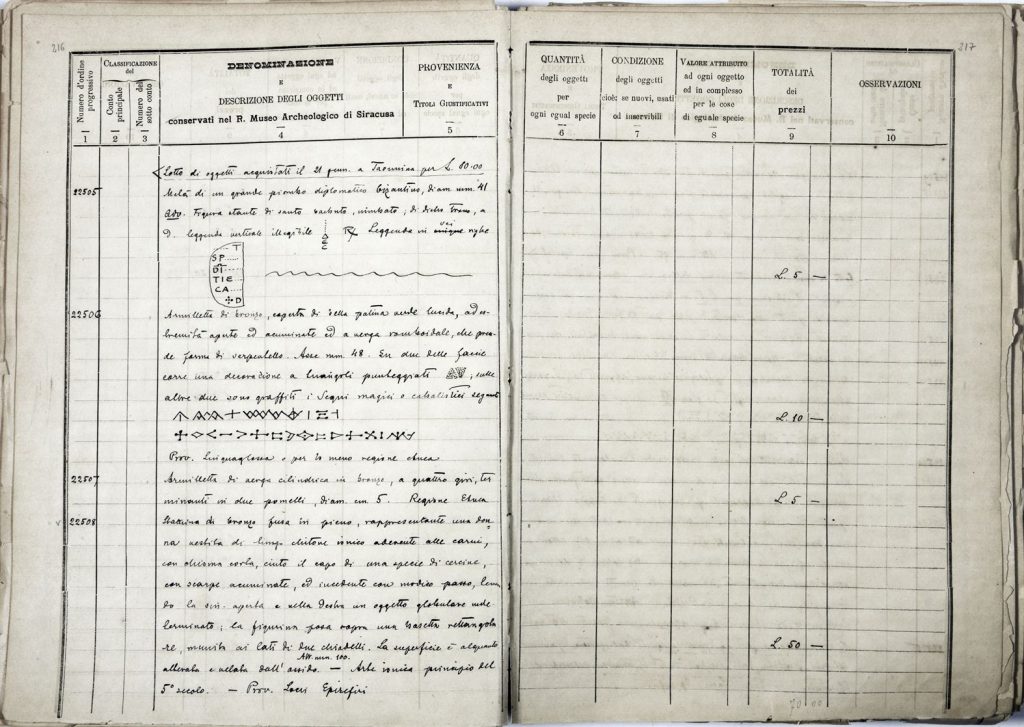 216
Numero d'ordine progressivo
CLASSIFICAZIONE del
Conto principale
Numero del sotto conto
DENOMINAZIONE
E
DESCRIZIONE DEGLI OGGETTI
conservati nel R. Museo Archeologico di Siracusa
PROVENIENZA
E
TITOLI GIUSTIFICATIVI
1 2 3 4 5
Lotto di oggetti acquistati il 21 genn. a Taormina per L. 80.00
22505
Metà di un grande piombo diplomatico bizantino, diam mm. 41
Adv. Figura stante di santo barbuto, nimbato, di dietro trono, a
D. leggenda verticale illegibile R Leggenda in sei righe
T
SP
DI
TIE
CA
✠D
22506
Armilletta di bronzo, coperta di bella patina verde lucida, ad es-
tremità apute ed acuminate ed a verga romboidale, che pren-
de forma di serpentello. Asse mm. 48. In due delle faccie
corre una decorazione a triangoli punteggiati, sulle
altre due sono graffiti i segni magici o cabalistici seguenti
Prov. Linguaglossa o per lo meno regione etnea
22507
Armilletta di verga cilindrica in bronzo, a quattro giri, ter
minanti in due pomelli, diam. cm 5. Regione Etnea
22508
Statuina di bronzo fusa in pieno, rappresentante una don-
na vestita di lungo chitone ionico aderente alle carni,
con chioma corta, cinto il capo di una specie di cercine,
con scarpe acuminate, ed incedente con modico passo, tenen
do la sin. aperta e nella destra un oggetto globulare inde
terminato; la figurina posa sopra una basetta rettangola
re, munita ai lati di due chiodelli. La superficie è alquanto
alterata e velata dall'ossido. Alt. mm. 100. — Arte ionica principio del
5° secolo. — Prov. Locri Epizefiri
217
QUANTITÀ
degli oggetti
per
ogni egual specie
CONDIZIONE
degli oggetti
cioè: se nuovi, usati
od inservibili
VALORE ATTRIBUITO
ad ogni oggetto
ed in complesso
per le cose
di eguale specie
TOTALITÀ
dei
prezzi
OSSERVAZIONI
6 7 8 9 10
L. 5 —
L. 10 —
L. 5 —
L. 50 —
70 00